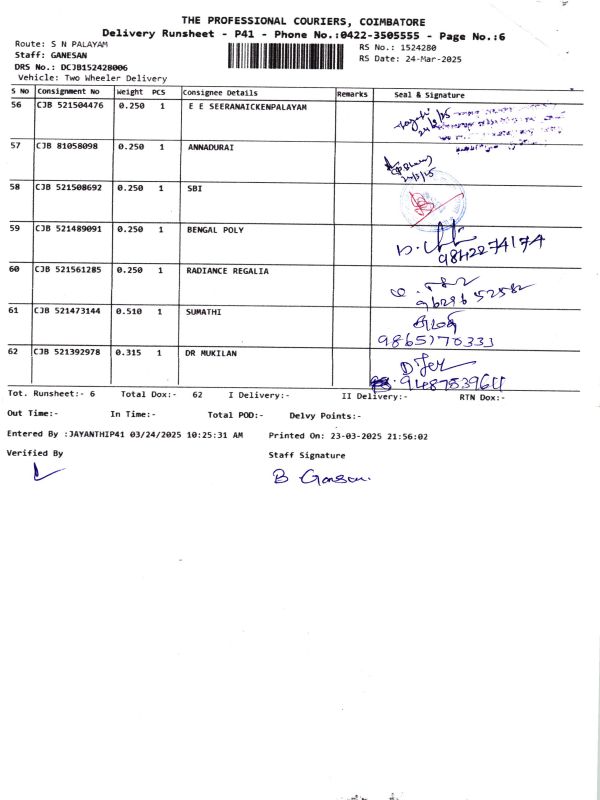 THE PROFESSIONAL COURIERS, COIMBATORE
Delivery Runsheet - P41 - Phone No.:0422-3505555 - Page No.:6
Route: S N PALAYAM
RS No.: 1524280
Staff: GANESAN
RS Date: 24-Mar-2025
DRS No.: DCJB152428006
Vehicle: Two Wheeler Delivery
S No Consignment No Weight PCS Consignee Details Remarks Seal & Signature
56 CJB 521504476 0.250 1 E E SEERANAICKENPALAYAM
57 CJB 81058098 0.250 1 ANNADURAI
58 CJB 521508692 0.250 1 SBI
59 CJB 521489091 0.250 1 BENGAL POLY
9842274174
60 CJB 521561285 0.250 1 RADIANCE REGALIA
9629652582
61 CJB 521473144 0.510 1 SUMATHI
9865170333
62 CJB 521392978 0.315 1 DR MUKILAN
9487539611
Tot. Runsheet:- 6 Total Dox:- 62 I Delivery:- II Delivery:- RTN Dox:-
Out Time:- In Time:- Total POD:- Delvy Points:-
Entered By :JAYANTHIP41 03/24/2025 10:25:31 AM Printed On: 23-03-2025 21:56:02
Verified By Staff Signature
B Gansan.